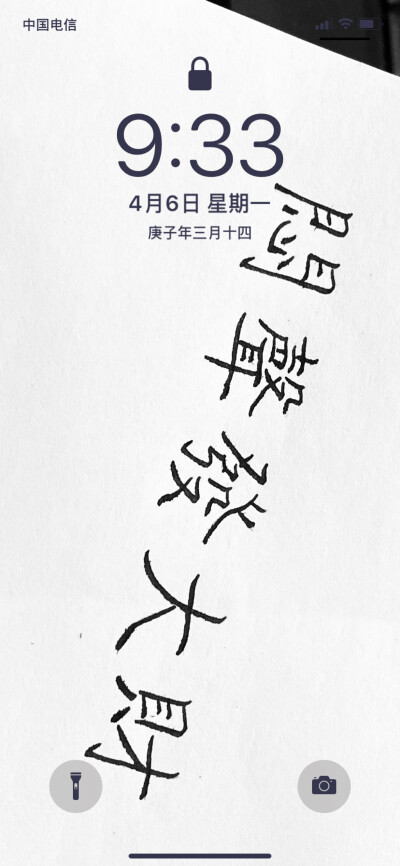 中国电信
9:33
4月6日 星期一
庚子年三月十四
悶聲發大財